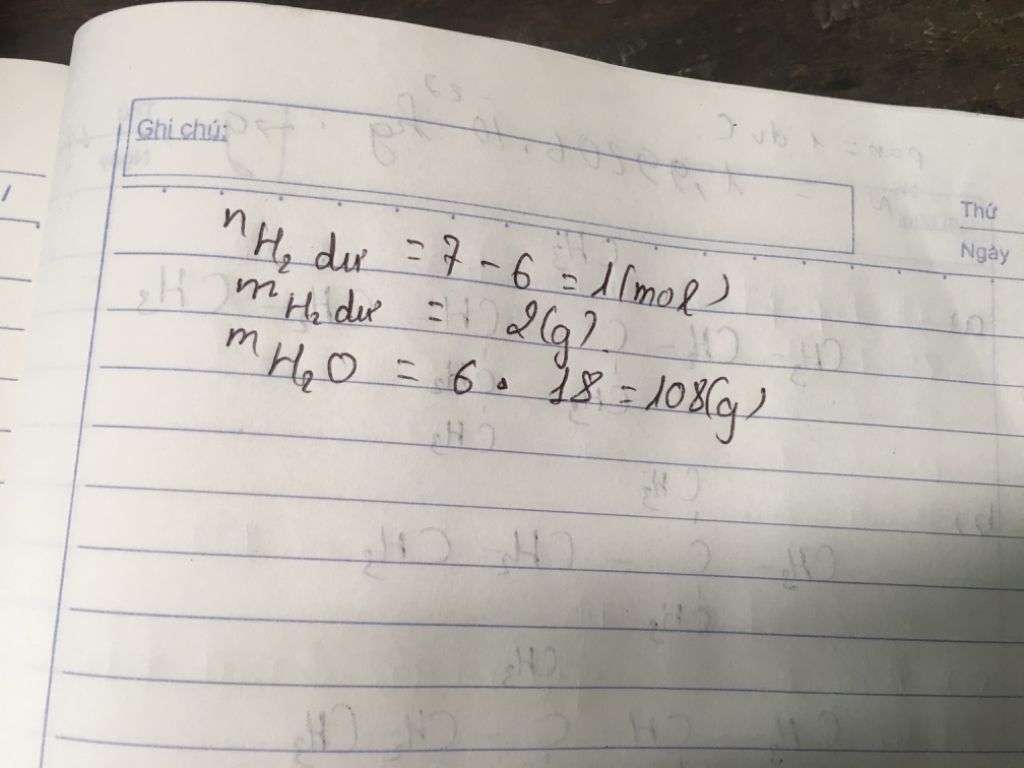 Ghi chú:
Thứ
Ngày
n H₂ dư = 7 - 6 = 1 (mol)
m H₂ dư = 2 (g)
m H₂O = 6 . 18 = 108 (g)